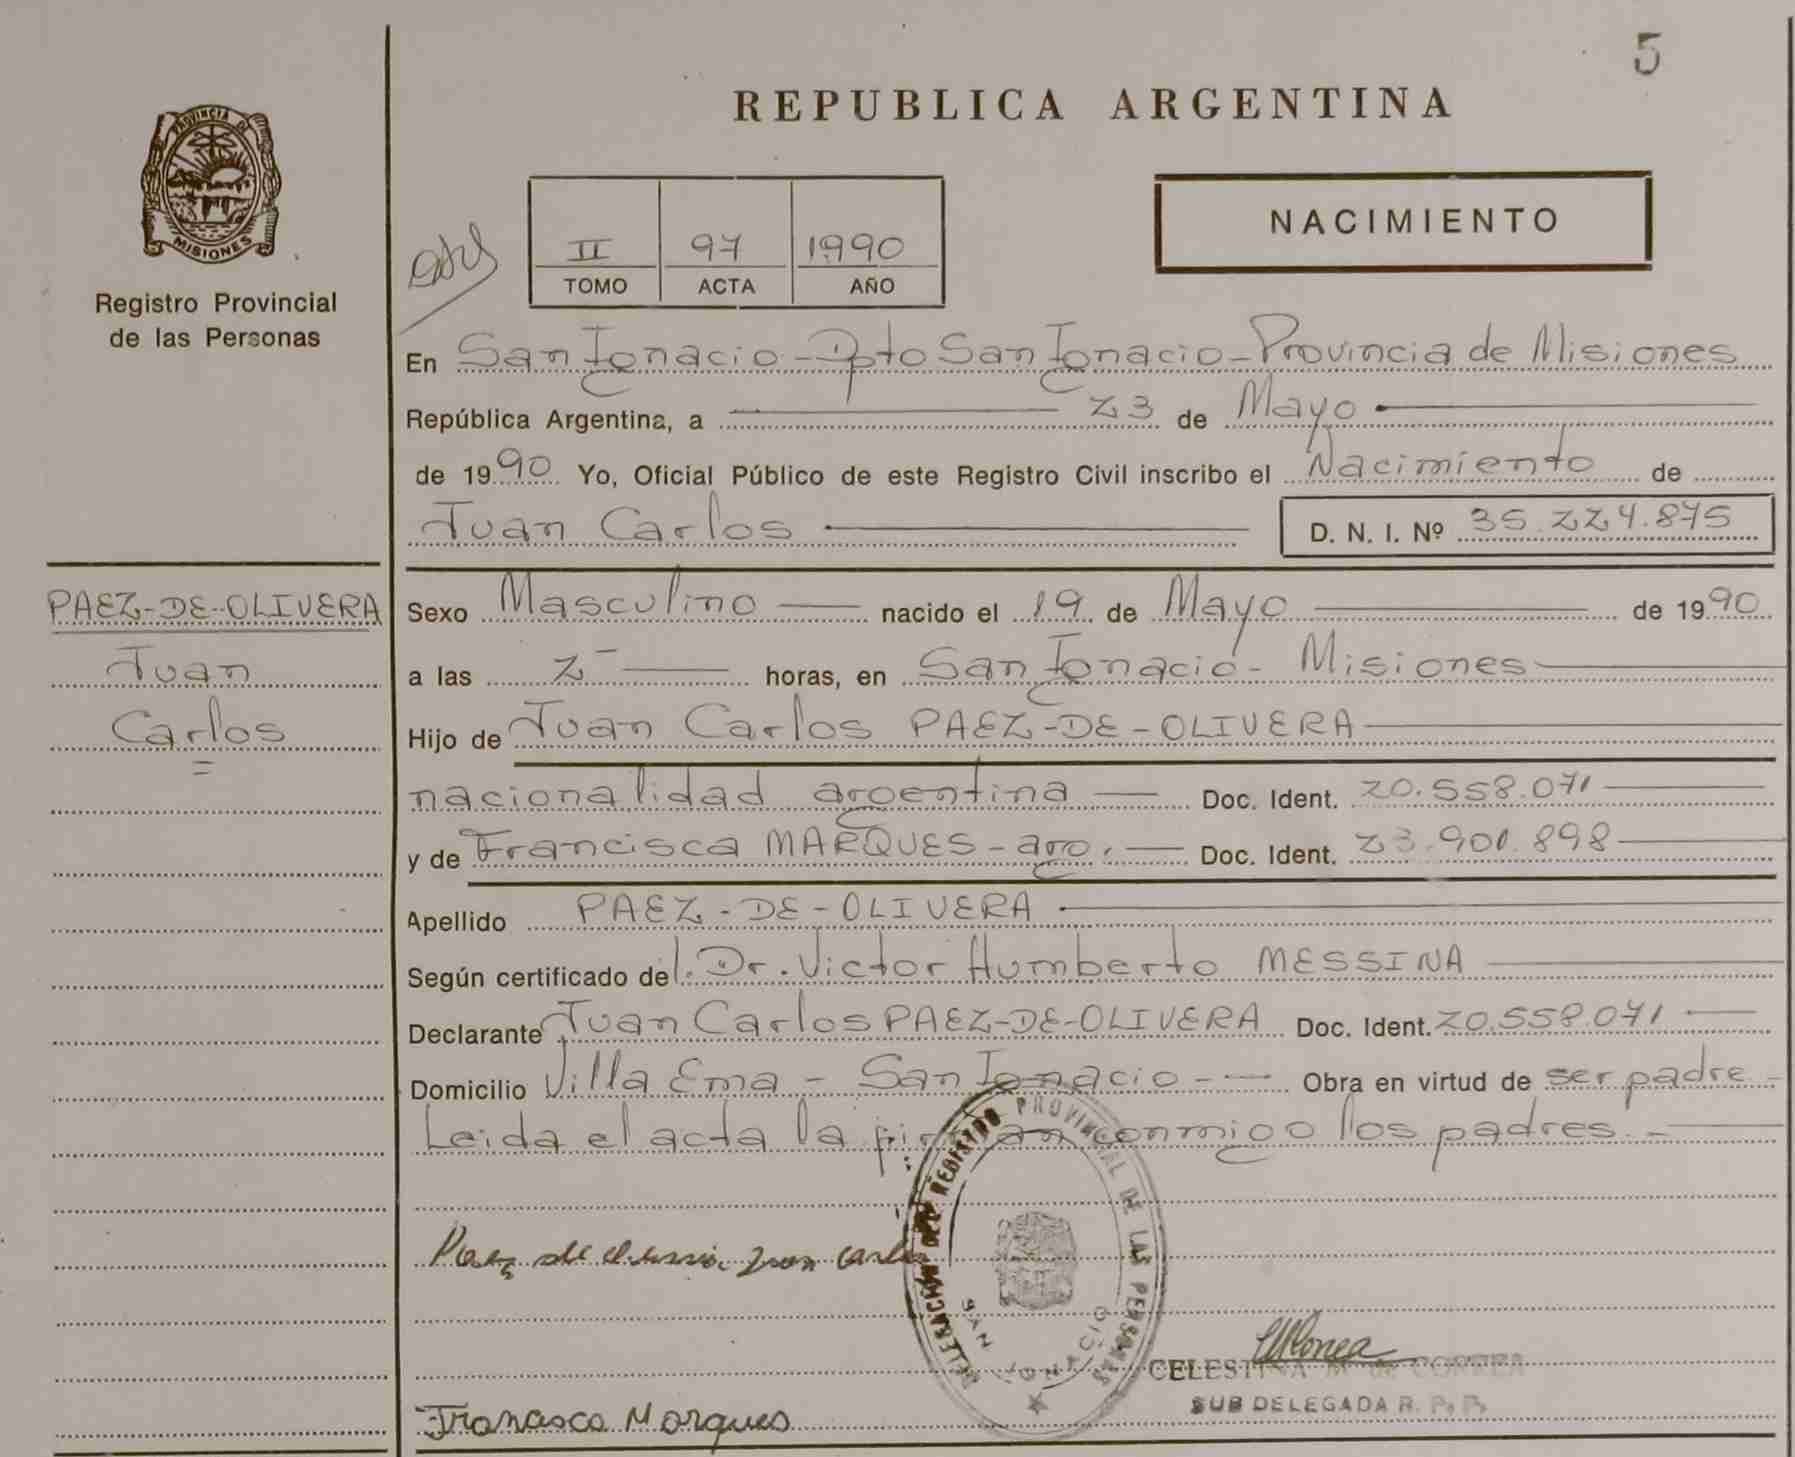 5
REPUBLICA ARGENTINA
PROVINCIA DE
MISIONES
Registro Provincial
de las Personas
II 97 1990
TOMO ACTA AÑO
NACIMIENTO
En San Ignacio - Dpto San Ignacio - Provincia de Misiones
República Argentina, a 23 de Mayo
de 1990 Yo, Oficial Público de este Registro Civil inscribo el Nacimiento de
Juan Carlos D. N. I. Nº 35.224.875
PAEZ-DE-OLIVERA
Juan
Carlos
Sexo Masculino nacido el 19 de Mayo de 1990
a las 2 horas, en San Ignacio - Misiones
Hijo de Juan Carlos PAEZ-DE-OLIVERA
nacionalidad argentina Doc. Ident. 20.558.071
y de Francisca MARQUES - arg. Doc. Ident. 23.901.898
Apellido PAEZ-DE-OLIVERA
Según certificado del Dr. Victor Humberto MESSINA
Declarante Juan Carlos PAEZ-DE-OLIVERA Doc. Ident. 20.558.071
Domicilio Villa Ema - San Ignacio - Obra en virtud de ser padre -
Leida el acta la firman conmigo los padres. -
DELEGACIÓN DEL REGISTRO PROVINCIAL DE LAS PERSONAS
SAN IGNACIO
Paez de Juan Carlos
CELESTINA M. de CORREA
SUB DELEGADA R. P. P.
Francisca Marques